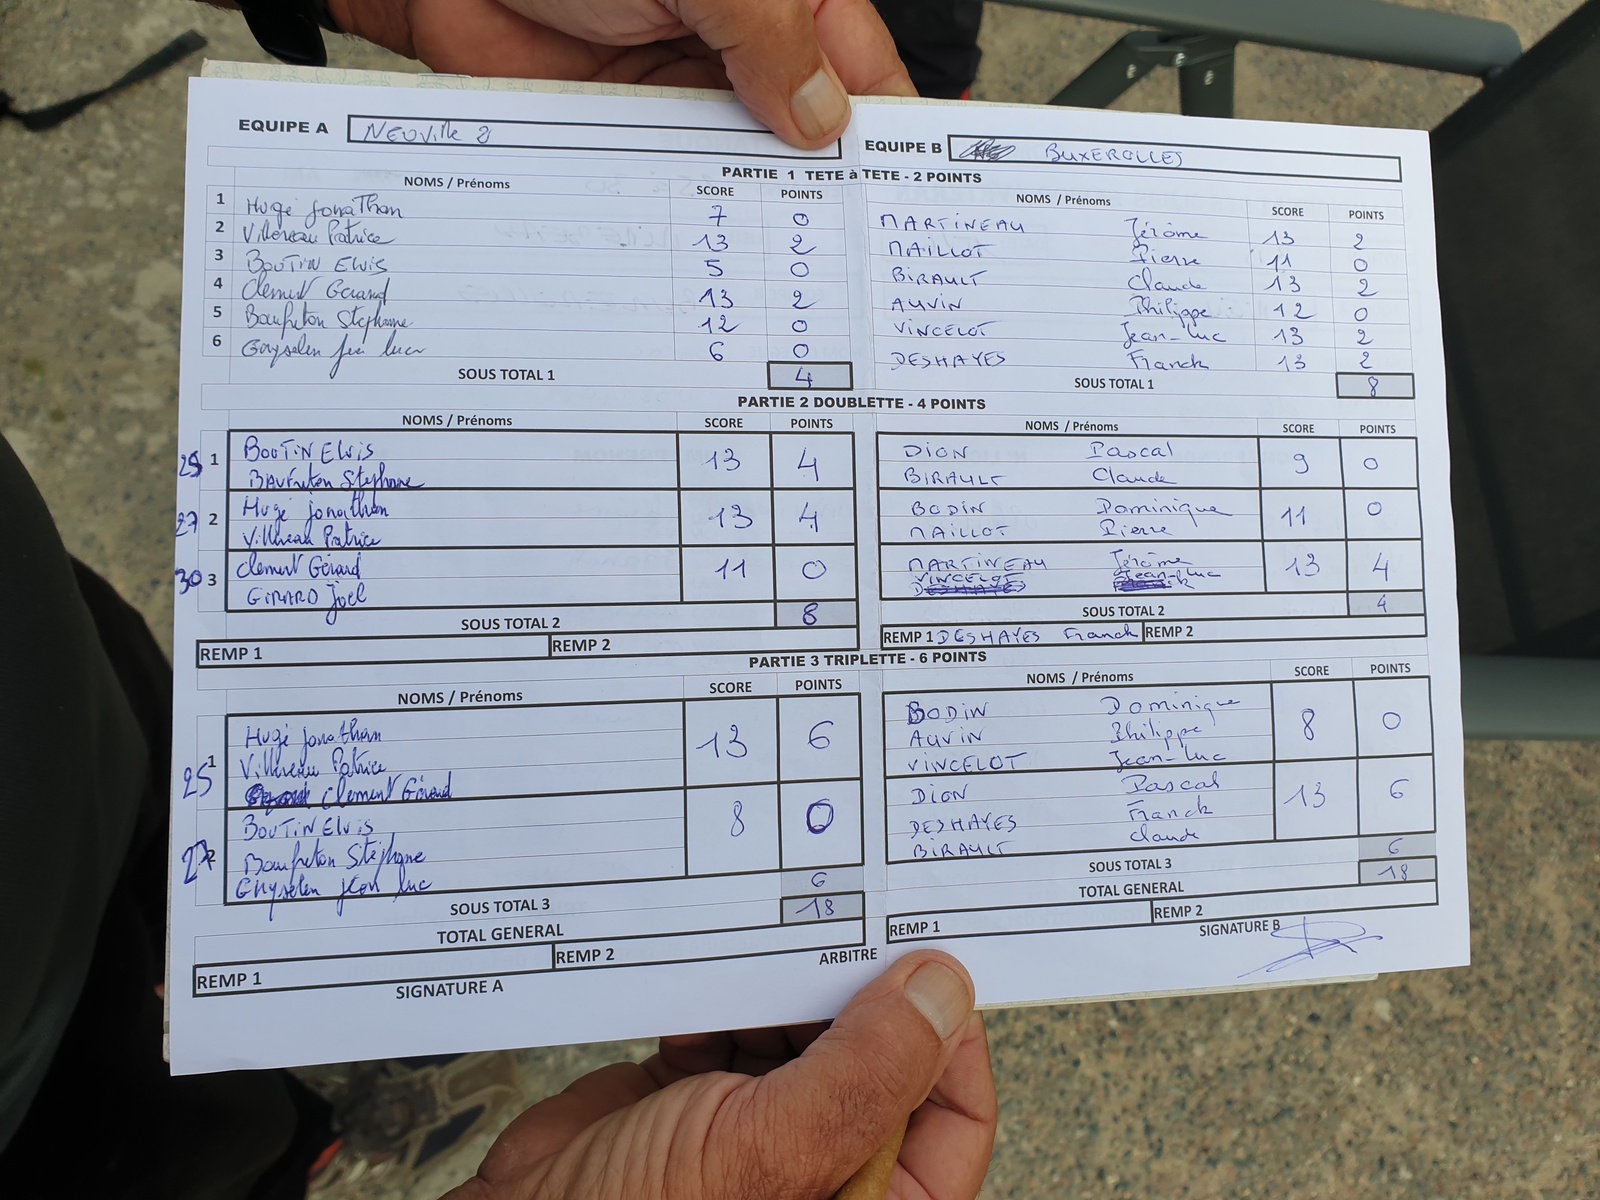 EQUIPE A NEUVille 2
EQUIPE B BUXEROLLES
PARTIE 1 TETE à TETE - 2 POINTS
NOMS / Prénoms SCORE POINTS
1 Hugé Jonathan 7 0
2 Villereau Patrice 13 2
3 BOUTIN Elvis 5 0
4 Clement Gérard 13 2
5 Baufreton Stéphane 12 0
6 Guyselen jean luc 6 0
SOUS TOTAL 1 4
NOMS / Prénoms SCORE POINTS
MARTINEAU Jérôme 13 2
MAILLOT Pierre 11 0
BIRAULT Claude 13 2
AUVIN Philippe 12 0
VINCELOT Jean-Luc 13 2
DESHAYES Franck 13 2
SOUS TOTAL 1 8
PARTIE 2 DOUBLETTE - 4 POINTS
NOMS / Prénoms SCORE POINTS
25 1 BOUTIN Elvis 13 4
BAUFreton Stephane
27 2 Hugé jonathan 13 4
Villereau Patrice
30 3 Clement Gérard 11 0
GIRARD Joël
SOUS TOTAL 2 8
REMP 1 REMP 2
NOMS / Prénoms SCORE POINTS
DION Pascal 9 0
BIRAULT Claude
BODIN Dominique 11 0
MAILLOT Pierre
MARTINEAU Jérôme 13 4
VINCELOT Jean-Luc
DESHAYES
SOUS TOTAL 2 4
REMP 1 DESHAYES Franck REMP 2
PARTIE 3 TRIPLETTE - 6 POINTS
NOMS / Prénoms SCORE POINTS
25 1 Hugé Jonathan 13 6
Villereau Patrice
Clement Gérard
27 2 BOUTIN Elvis 8 0
Baufreton Stéphane
Guyselen jean luc
SOUS TOTAL 3 6
TOTAL GENERAL 18
REMP 1 REMP 2
SIGNATURE A
ARBITRE
NOMS / Prénoms SCORE POINTS
BODIN Dominique 8 0
AUVIN Philippe
VINCELOT Jean-Luc
DION Pascal 13 6
DESHAYES Franck
BIRAULT Claude
SOUS TOTAL 3 6
TOTAL GENERAL 18
REMP 1 REMP 2
SIGNATURE B